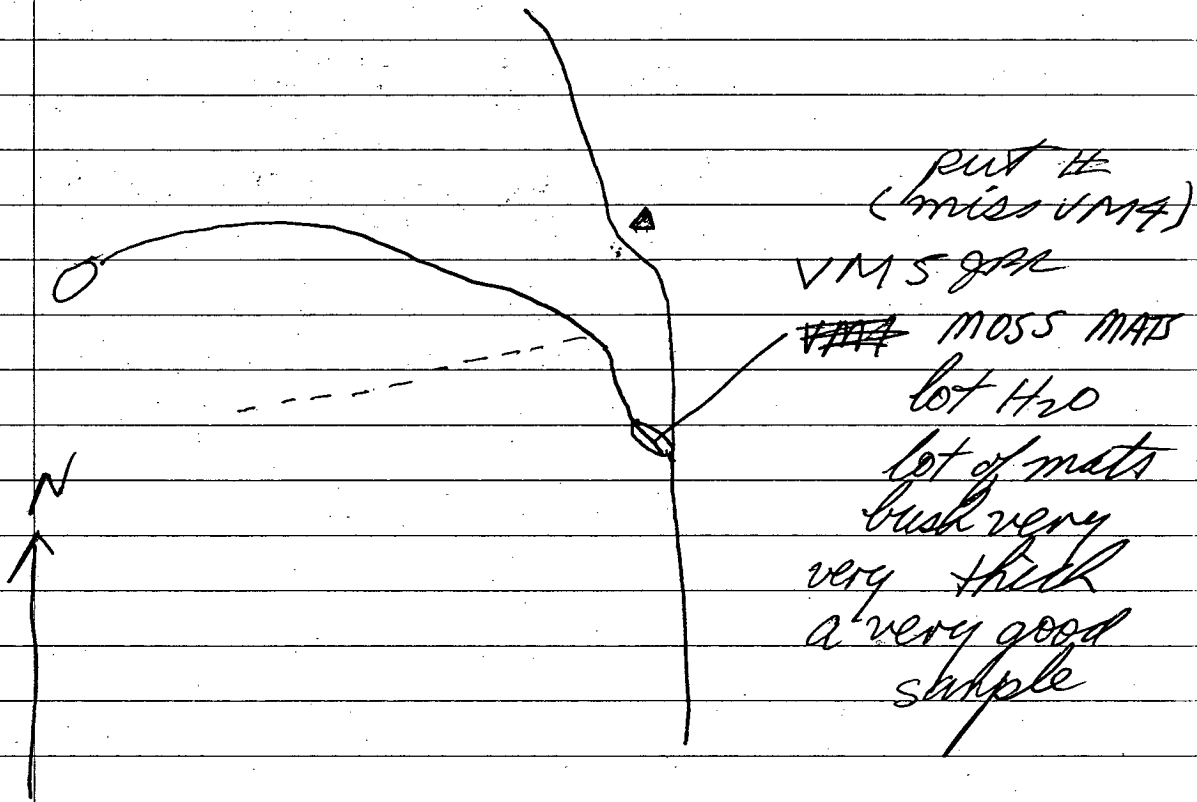 put #
(miss VM4)
VM5
VM4 MOSS MATS
lot H2O
lot of mats
bush very
very thick
a very good
sample
N